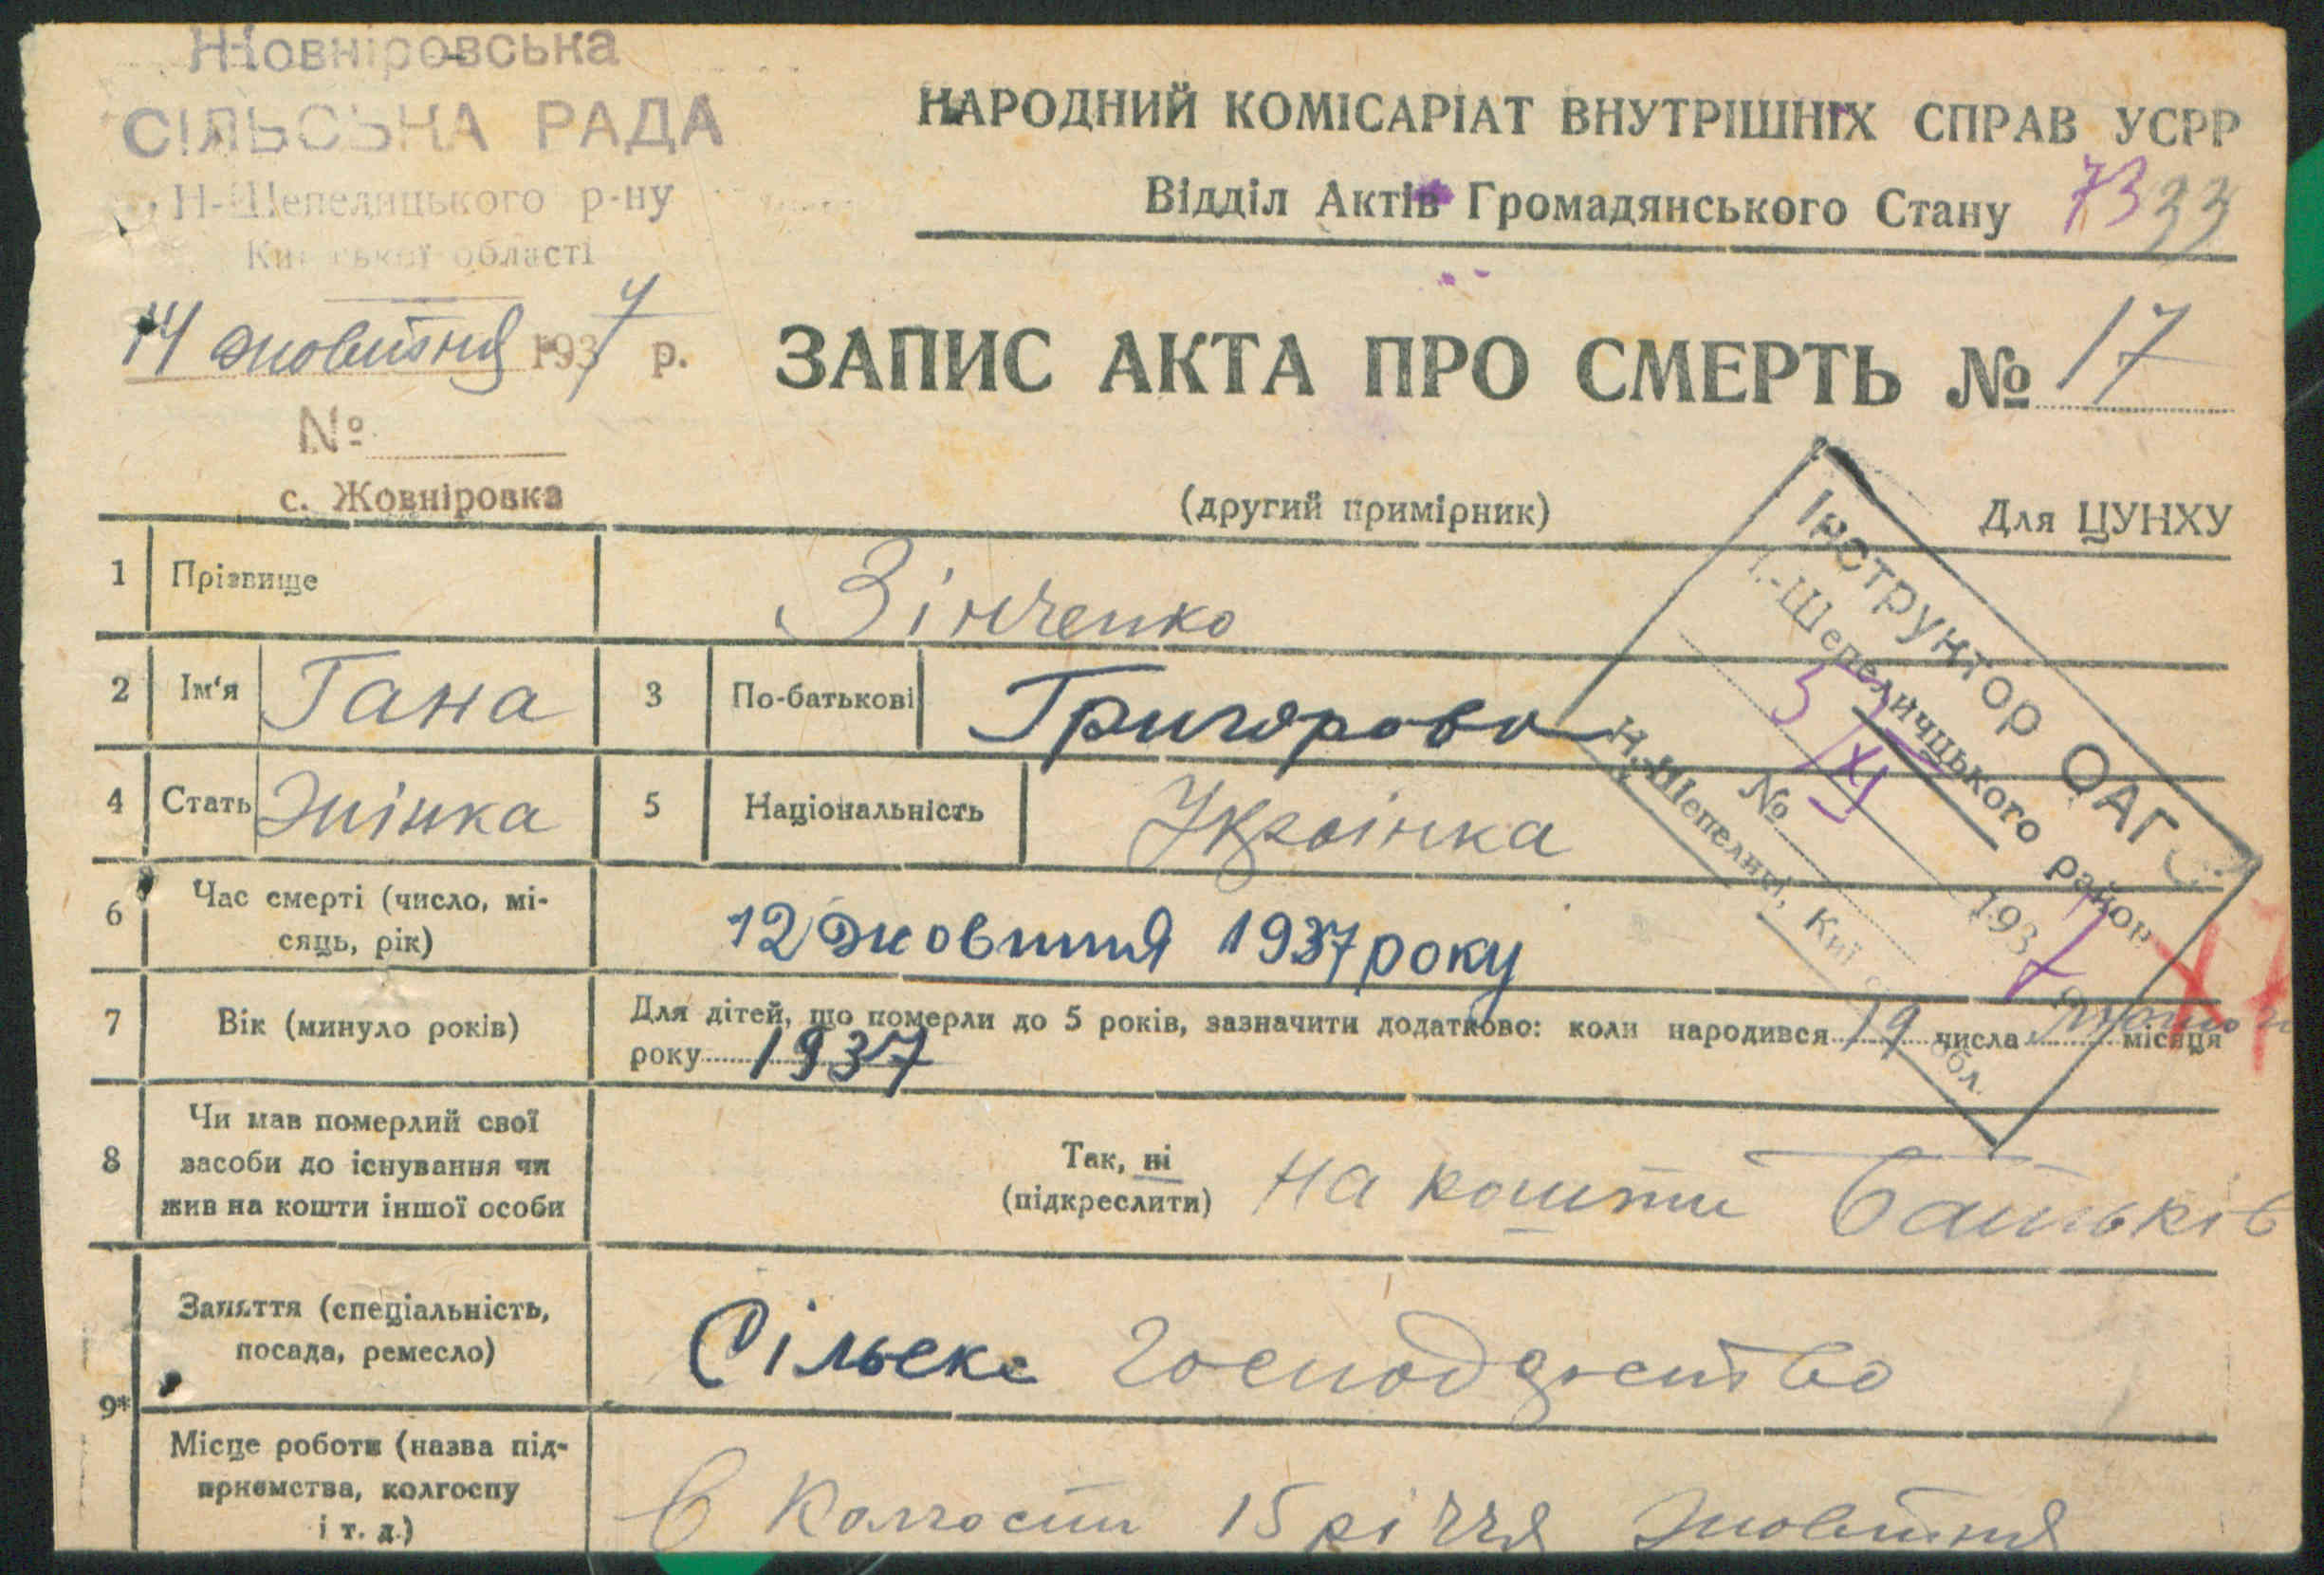 Жовніровська
СІЛЬСЬКА РАДА
Н-Шепелицького р-ну
Київської області
14 жовтня 1937 р.
№
с. Жовніровка
НАРОДНИЙ КОМІСАРІАТ ВНУТРІШНІХ СПРАВ УСРР
Відділ Актів Громадянського Стану 7333
ЗАПИС АКТА ПРО СМЕРТЬ № 17
(другий примірник)
Для ЦУНХУ
Інструктор ОАГС
Н.-Шепеличцького район
5/XI 1937
№
Н.-Шепеличі, Киї обл.
1 Прізвище Зінченко
2 Ім'я Гана 3 По-батькові Григорово
4 Стать Жінка 5 Національність Українка
6 Час смерті (число, мі-
сяць, рік) 12 жовтня 1937 року
7 Вік (минуло років) Для дітей, що померли до 5 років, зазначити додатково: коли народився 19 числа місяця
року 1937
8 Чи мав померлий свої
засоби до існування чи
жив на кошти іншої особи
Так, ні
(підкреслити) на кошти батьків
9* Заняття (спеціальність,
посада, ремесло) Сільске господарство
Місце роботи (назва під-
приємства, колгоспу
і т. д.) в колгоспи 15 річчя жовтня